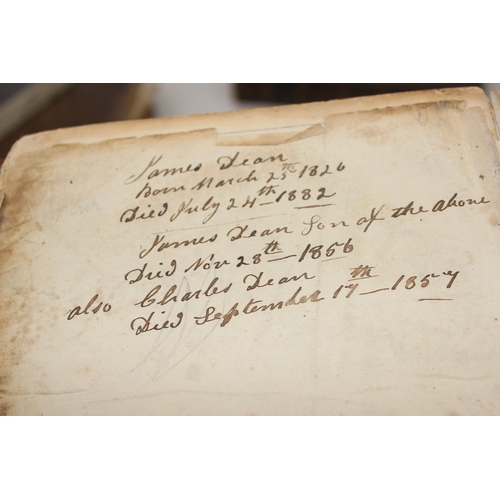 James Dean
Born March 25th 1826
Died July 24th - 1882
James Dean Son of the Above
Died Nov 28th - 1856
also Charles Dean
Died September 17th - 1857